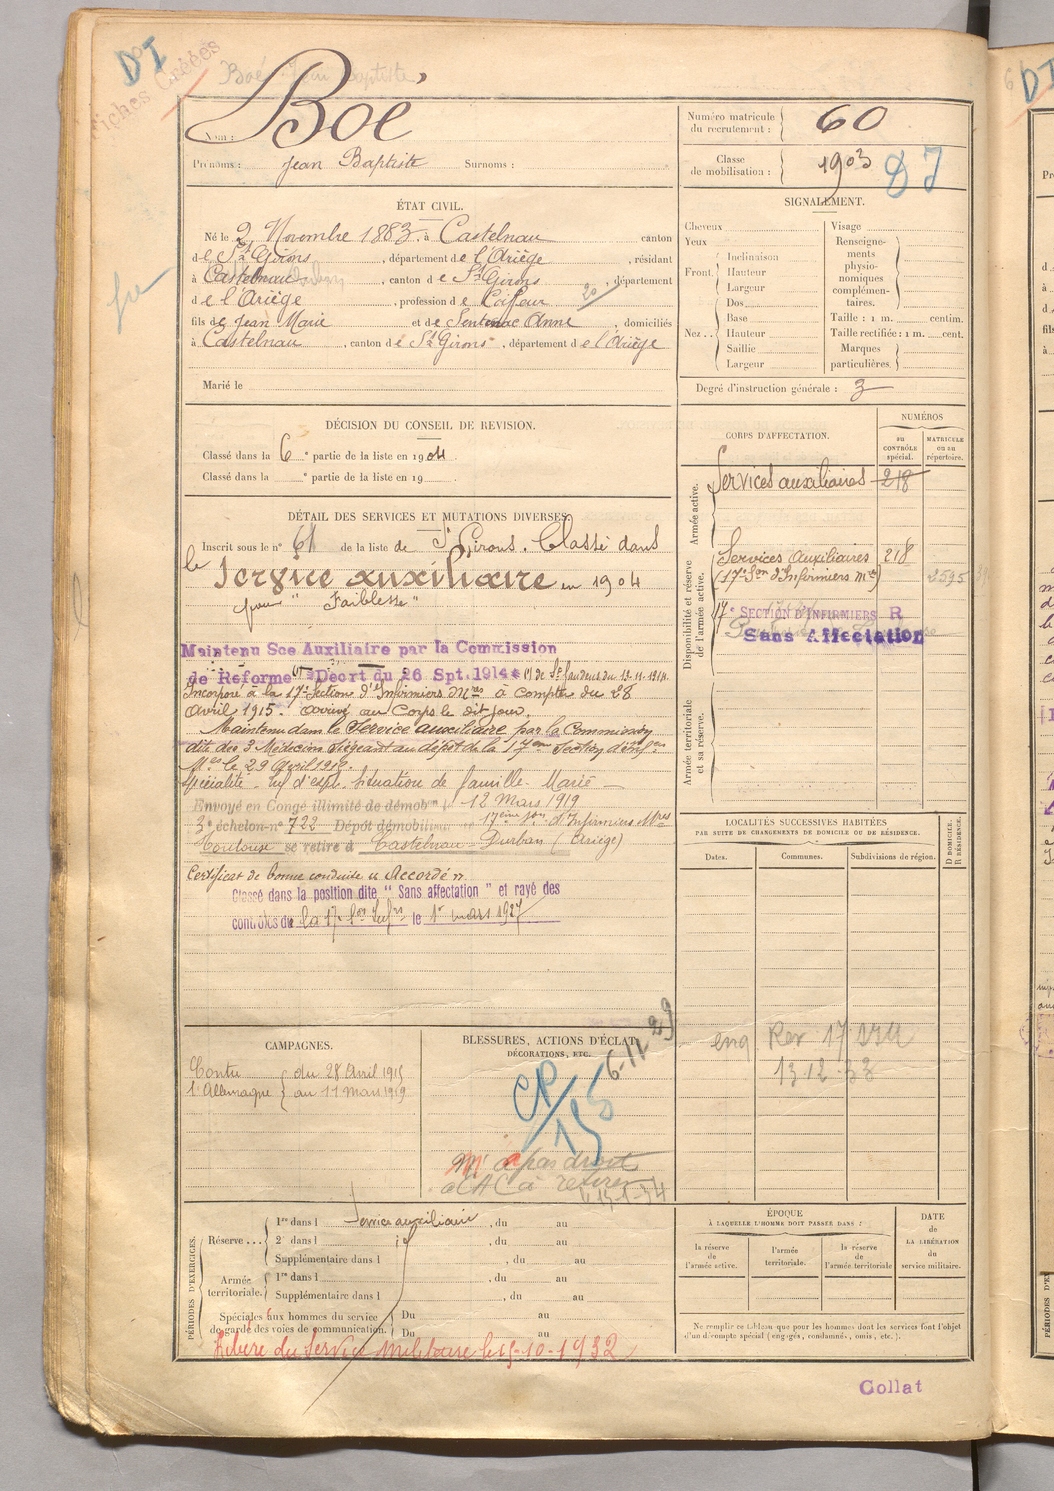 DT
Fiches Créées
Boé Jean Baptiste
Nom : Boé
Prénoms : Jean Baptiste Surnoms :
Numéro matricule du recrutement : 60
Classe de mobilisation : 1903
DT
ÉTAT CIVIL.
Né le 2 Novembre 1883, à Castelnau canton
de St Girons, département de l'Ariège, résidant
à Castelnau Durban, canton de St Girons, département
de l'Ariège, profession de Coiffeur 20
fils de Jean Marie et de Sentenac Anne, domiciliés
à Castelnau, canton de St Girons, département de l'Ariège
Marié le
SIGNALEMENT.
Cheveux
Yeux
Front. Inclinaison
Hauteur
Largeur
Nez.. Dos
Base
Hauteur
Saillie
Largeur
Visage
Renseignements physionomiques complémentaires.
Taille : 1 m. centim.
Taille rectifiée : 1 m. cent.
Marques particulières.
Degré d'instruction générale : 3
DÉCISION DU CONSEIL DE REVISION.
Classé dans la 6 e partie de la liste en 1904
Classé dans la e partie de la liste en 19
CORPS D'AFFECTATION.
NUMÉROS
au CONTRÔLE spécial.
MATRICULE ou au répertoire.
Armée active.
Services auxiliaires 218
Disponibilité et réserve de l'armée active.
Services Auxiliaires 218
(17e Son d'Infirmiers mres) 2595
17e SECTION D'INFIRMIERS R
Sans Affectation
Armée territoriale et sa réserve.
DÉTAIL DES SERVICES ET MUTATIONS DIVERSES.
Inscrit sous le n° 61 de la liste de St Girons. Classé dans
le Service auxiliaire en 1904
pour " Faiblesse "
Maintenu Sce Auxiliaire par la Commission
de Réforme Décret du 26 Spt. 1914 de St Gaudens du 12.11.1914.
Incorporé à la 17e Section d'Infirmiers Mres à compter du 28
Avril 1915. Arrivé au Corps le dit jour.
Maintenu dans le Service auxiliaire par la Commission
dite des 3 Médecins siégeant au dépôt de la 17eme Section d'infres
Mres le 29 Avril 1916.
Spécialité Situation de famille. Marié
Envoyé en Congé illimité de démobon le 12 Mars 1919
3e échelon n° 722 Dépôt démobilisateur 17eme son d'Infirmiers Mres
Toulouse se retire à Castelnau-Durban (Ariège)
Certificat de bonne conduite "Accordé".
Classé dans la position dite " Sans affectation " et rayé des
contrôles de la 17 Son Infres le 1er mars 1927
LOCALITÉS SUCCESSIVES HABITÉES
PAR SUITE DE CHANGEMENTS DE DOMICILE OU DE RÉSIDENCE.
Dates. Communes. Subdivisions de région.
D DOMICILE.
R RÉSIDENCE.
13-12-33
CAMPAGNES.
Contre
l'Allemagne
du 28 Avril 1915
au 11 Mars 1919
BLESSURES, ACTIONS D'ÉCLAT,
DÉCORATIONS, ETC.
CP/195
n'a pas droit
PÉRIODES D'EXERCICES.
Réserve... 1re dans l Service auxiliaire, du au
2e dans l id, du au
Supplémentaire dans l , du au
Armée territoriale. 1re dans l , du au
Supplémentaire dans l , du au
Spéciales aux hommes du service de garde des voies de communication. Du au
Du au
Libéré du Service Militaire le 15-10-1932
ÉPOQUE
À LAQUELLE L'HOMME DOIT PASSER DANS :
la réserve de l'armée active.
l'armée territoriale.
la réserve de l'armée territoriale
DATE de LA LIBÉRATION du service militaire.
Ne remplir ce tableau que pour les hommes dont les services font l'objet
d'un décompte spécial (engagés, condamnés, omis, etc.).
Collat